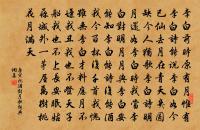 李白前時原有月惟有
李白詩能說李白如今
已仙去月在青天幾圓
缺今人猶歌李白詩明
月還如李白時我學李
白對明月月與李白安
能知李白能詩復能酒
我今百杯復千首我愧
雖無李白才料應月不
嫌我醜我也不登天子
船我也不上長安眠姑
蘇城外一茅屋萬樹桃
花月滿天
唐寅把酒對月歌